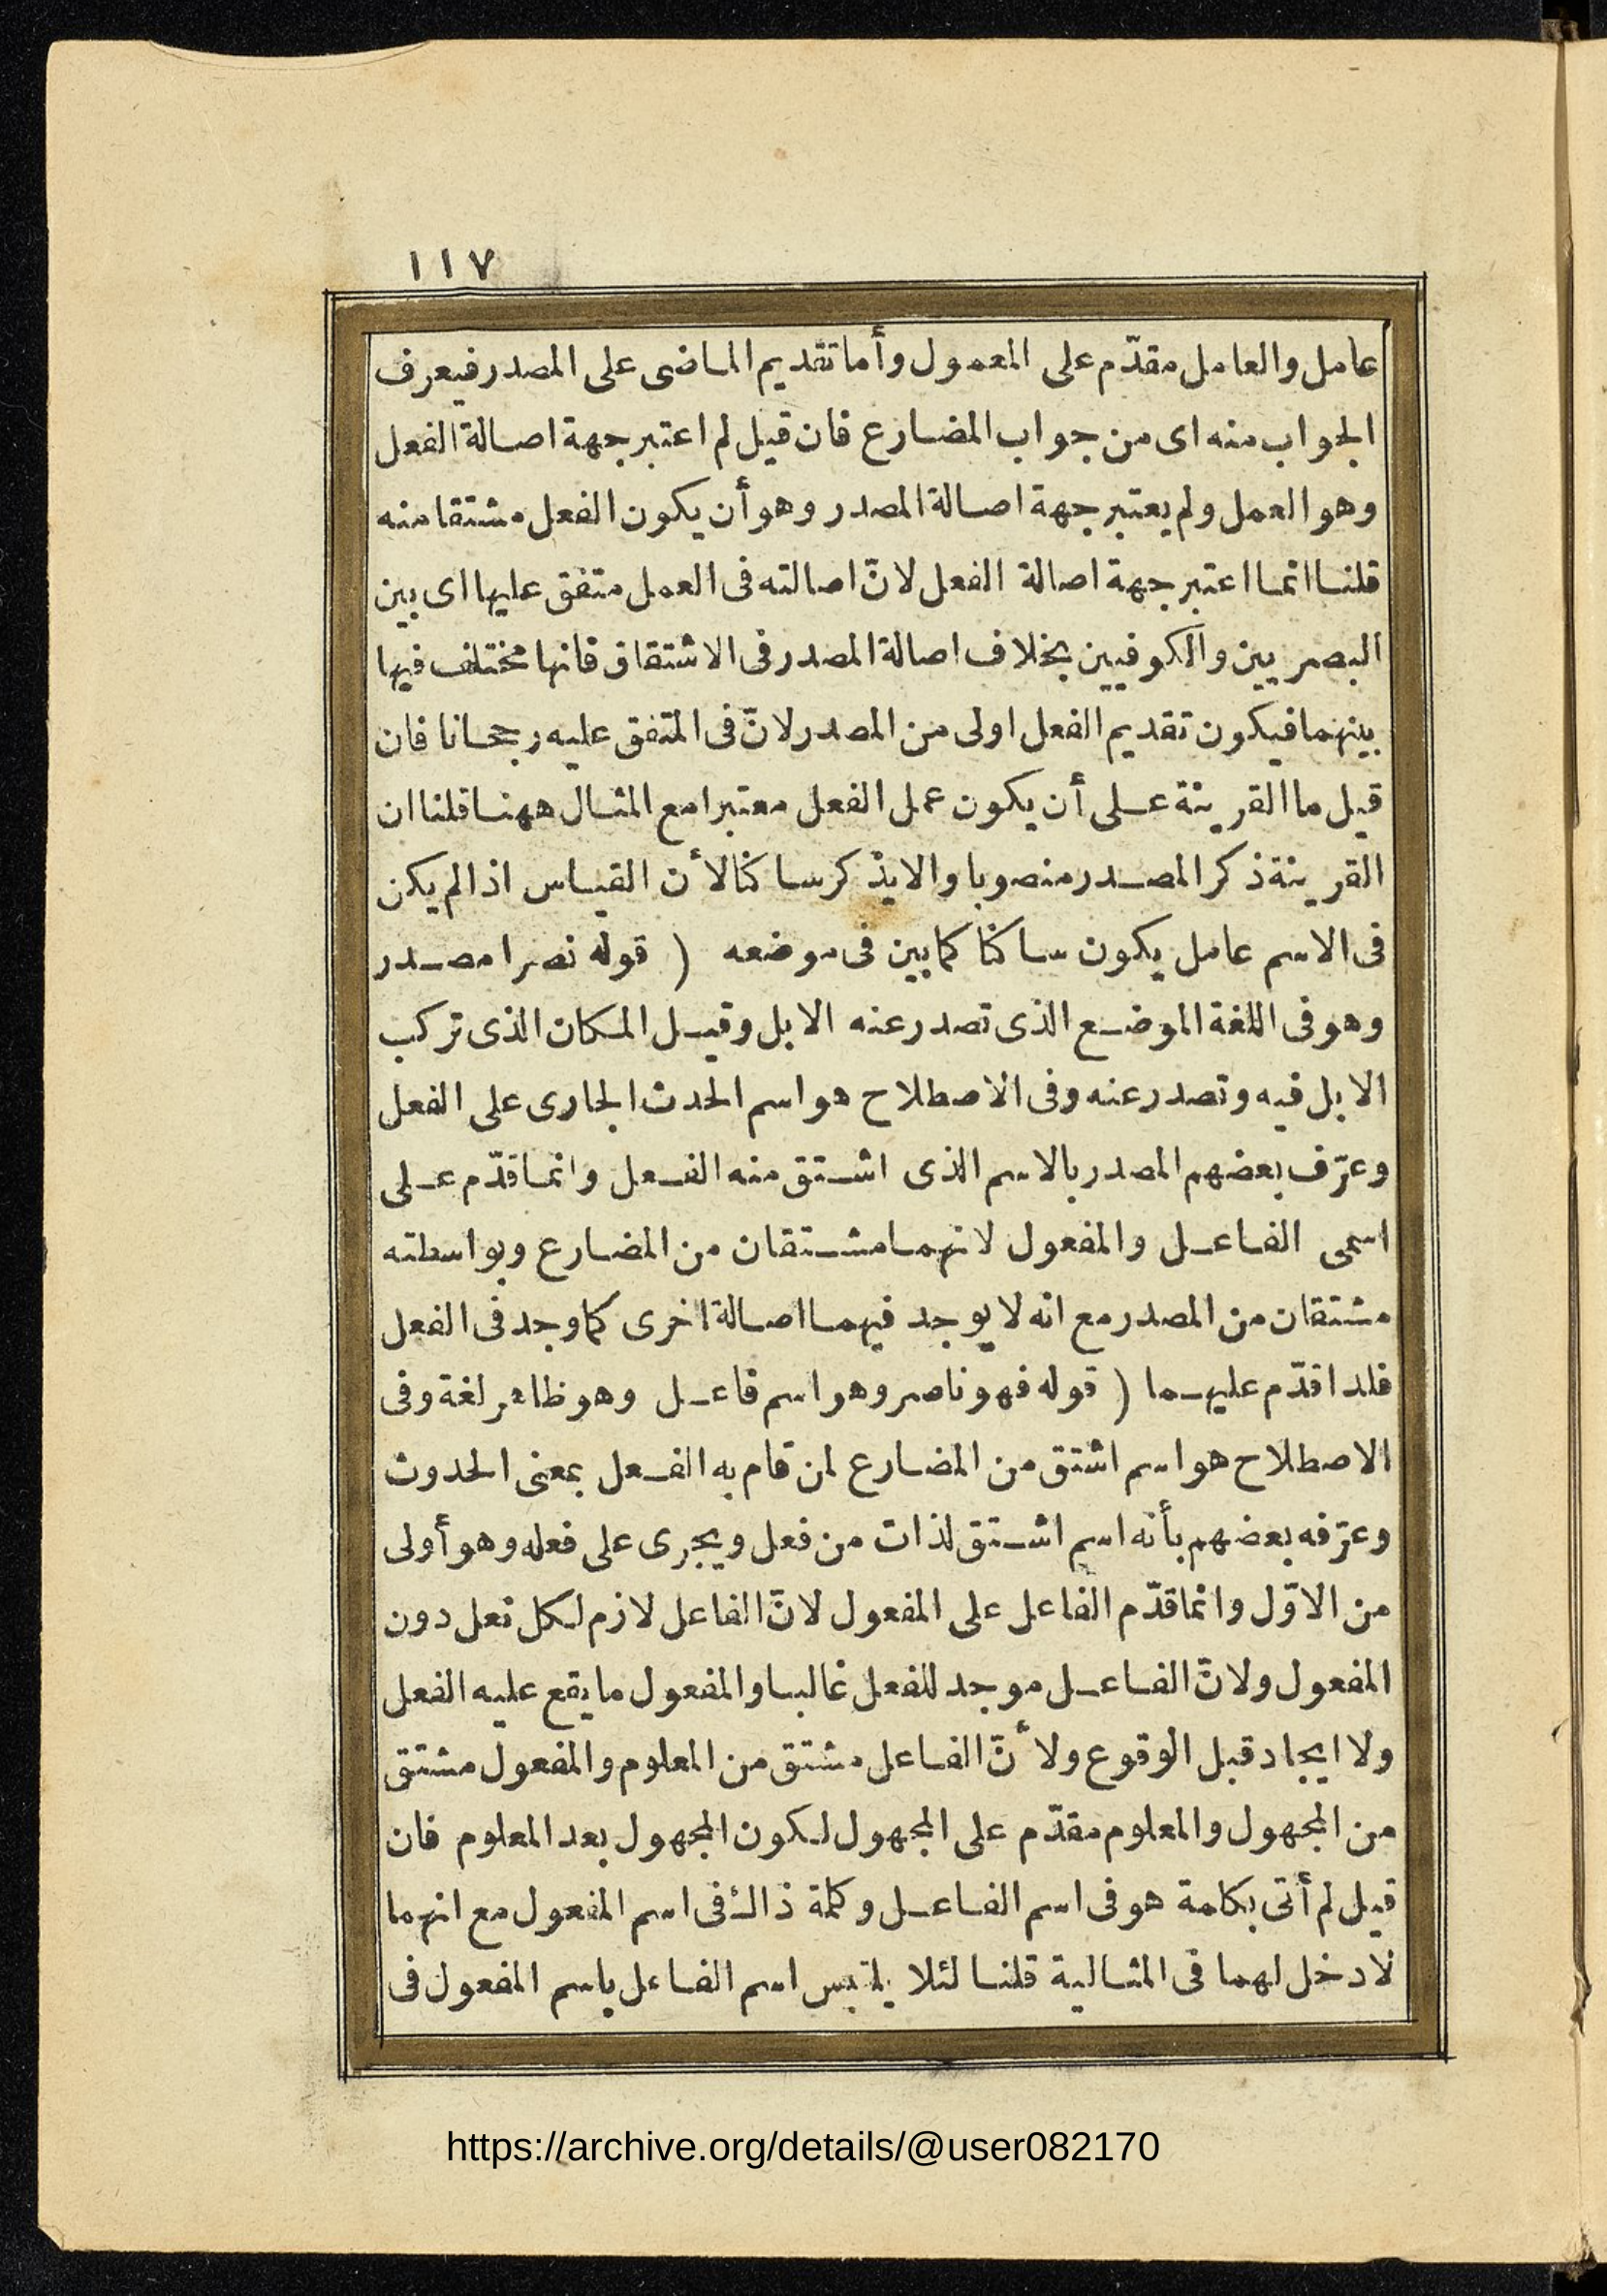 ١١٧
عامل والعامل مقدّم على المعمول وأما تقديم الماضى على المصدر فيعرف
الجواب منه اى من جواب المضارع فان قيل لم اعتبر جهة اصالة الفعل
وهو العمل ولم يعتبر جهة اصالة المصدر وهو أن يكون الفعل مشتقا منه
قلنا انما اعتبر جهة اصالة الفعل لانّ اصالته فى العمل متفق عليها اى بين
البصريين والكوفيين بخلاف اصالة المصدر فى الاشتقاق فانها مختلف فيها
بينهما فيكون تقديم الفعل اولى من المصدر لانّ فى المتفق عليه رجحانا فان
قيل ما القرينة على أن يكون عمل الفعل معتبرا مع المثال ههنا قلنا ان
القرينة ذكر المصدر منصوبا والا يذكر ساكنا لأن القياس اذا لم يكن
فى الاسم عامل يكون ساكنا كما بين فى موضعه ( قوله نصرا مصدر
وهو فى اللغة الموضع الذى تصدر عنه الابل وقيل المكان الذى تركب
الابل فيه وتصدر عنه وفى الاصطلاح هو اسم الحدث الجارى على الفعل
وعرّف بعضهم المصدر بالاسم الذى اشتق منه الفعل وانما قدّم على
اسمى الفاعل والمفعول لانهما مشتقان من المضارع وبواسطته
مشتقان من المصدر مع انه لا يوجد فيهما اصالة اخرى كما وجد فى الفعل
فلذا قدّم عليهما ( قوله فهو ناصر وهو اسم فاعل وهو ظاهر لغة وفى
الاصطلاح هو اسم اشتق من المضارع لمن قام به الفعل بمعنى الحدوث
وعرّفه بعضهم بأنه اسم اشتق لذات من فعل ويجرى على فعله وهو أولى
من الاوّل وانما قدّم الفاعل على المفعول لانّ الفاعل لازم لكل فعل دون
المفعول ولانّ الفاعل موجد للفعل غالبا والمفعول ما يقع عليه الفعل
ولا ايجاد قبل الوقوع ولأنّ الفاعل مشتق من المعلوم والمفعول مشتق
من المجهول والمعلوم مقدّم على المجهول لكون المجهول بعد المعلوم فان
قيل لم أتى بكلمة هو فى اسم الفاعل وكلمة ذاك فى اسم المفعول مع انهما
لا دخل لهما فى المثالية قلنا لئلا يلتبس اسم الفاعل باسم المفعول فى
https://archive.org/details/@user082170